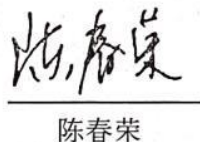 陈春荣
陈春荣